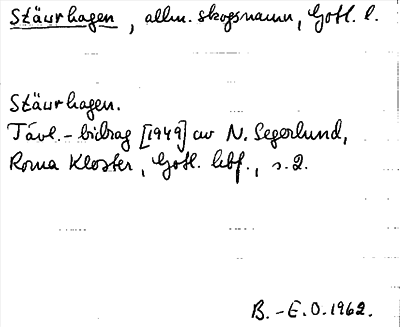 Stäurhagen, allm. skogsnamn, Gotl. l.
Stäurhagen.
Tävl.-bidrag [1949] av N. Segerlund,
Roma Kloster, Gotl. lbf., s. 2.
B.-E.O. 1962.